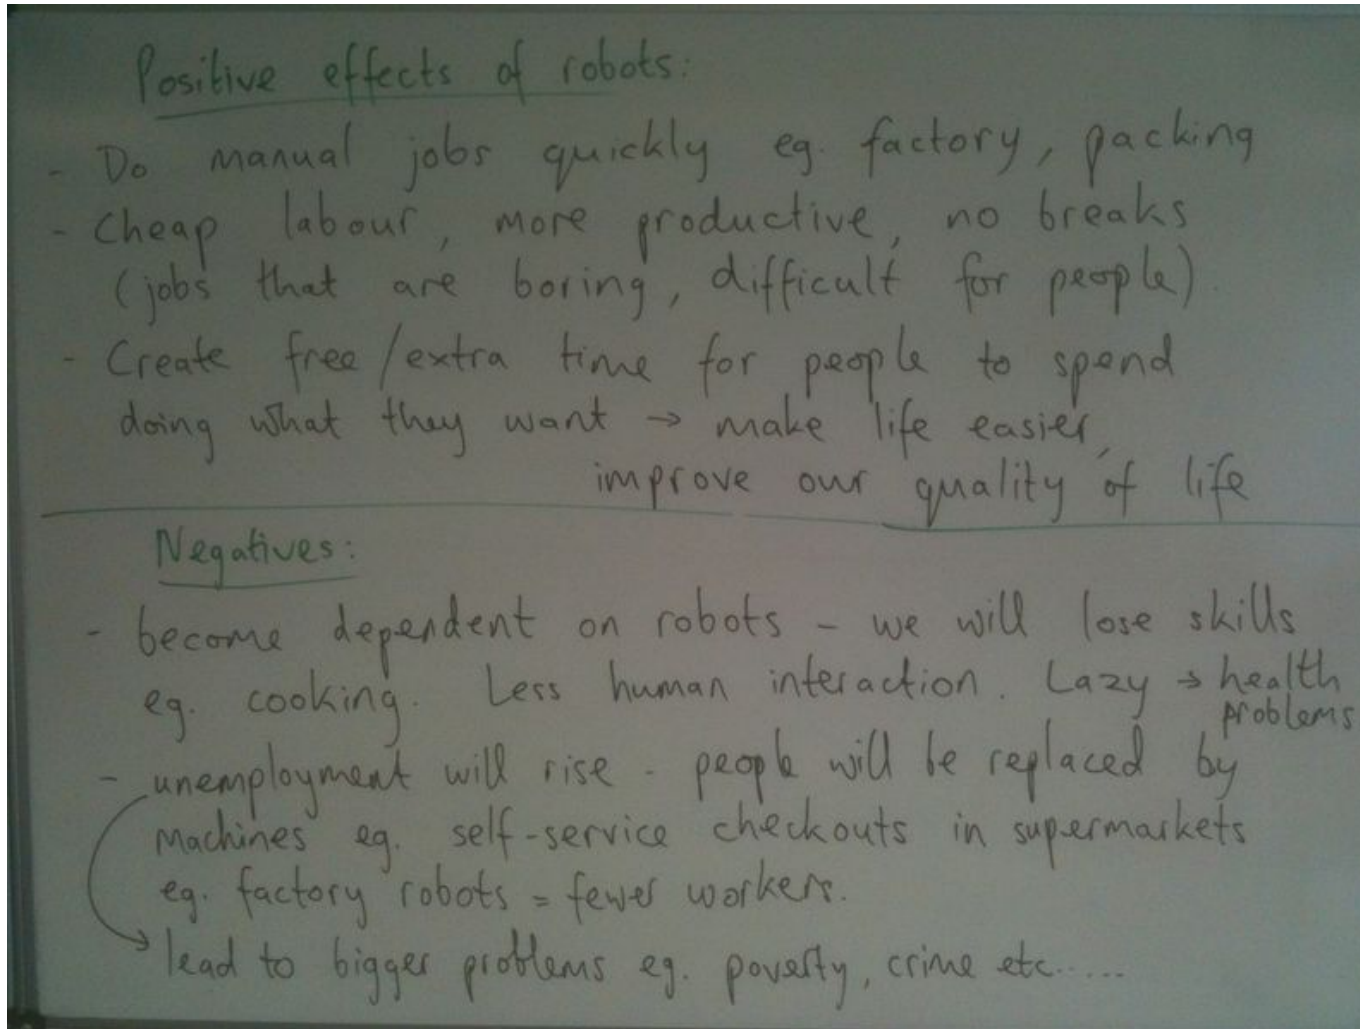 Positive effects of robots:
- Do manual jobs quickly eg. factory, packing
- Cheap labour, more productive, no breaks
(jobs that are boring, difficult for people)
- Create free/extra time for people to spend
doing what they want → make life easier,
improve our quality of life
Negatives:
- become dependent on robots - we will lose skills
eg. cooking. Less human interaction. Lazy → health
problems
- unemployment will rise - people will be replaced by
machines eg. self-service checkouts in supermarkets
eg. factory robots = fewer workers.
→ lead to bigger problems eg. poverty, crime etc......